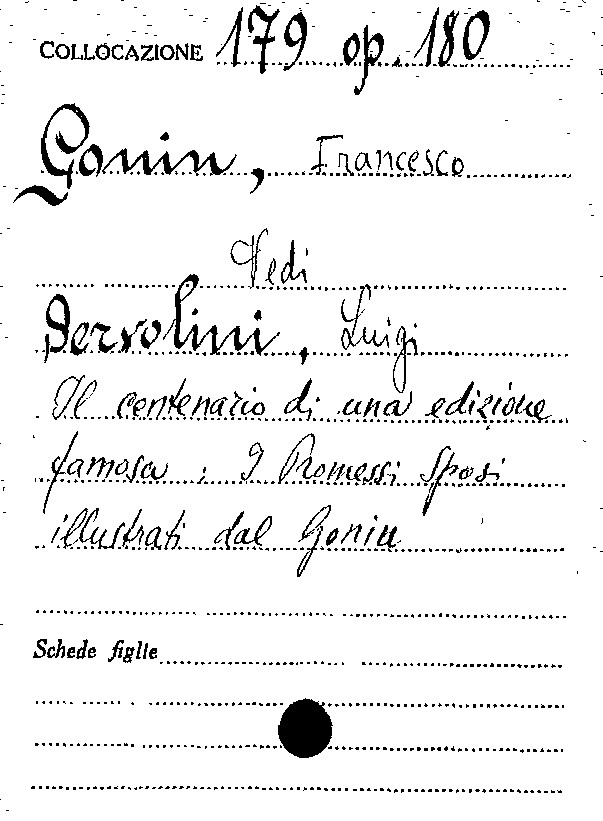 COLLOCAZIONE 179 op. 180
Gonin, Francesco
Vedi
Servolini, Luigi
Il centenario di una edizione
famosa : I Promessi Sposi
illustrati dal Gonin
Schede figlie